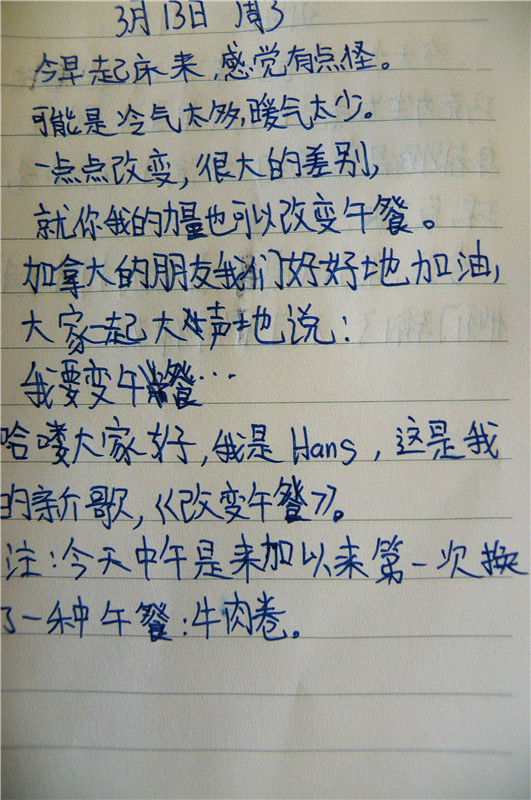 3月13日 周3
今早起床来,感觉有点怪。
可能是冷气太多,暖气太少。
一点点改变,很大的差别,
就你我的力量也可以改变午餐。
加拿大的朋友我们好好地加油,
大家一起大声地说:
我要变午餐…
哈喽大家好,我是Hans,这是我
的新歌,《改变午餐》。
注:今天中午是来加以来第一次换
了一种午餐:牛肉卷。